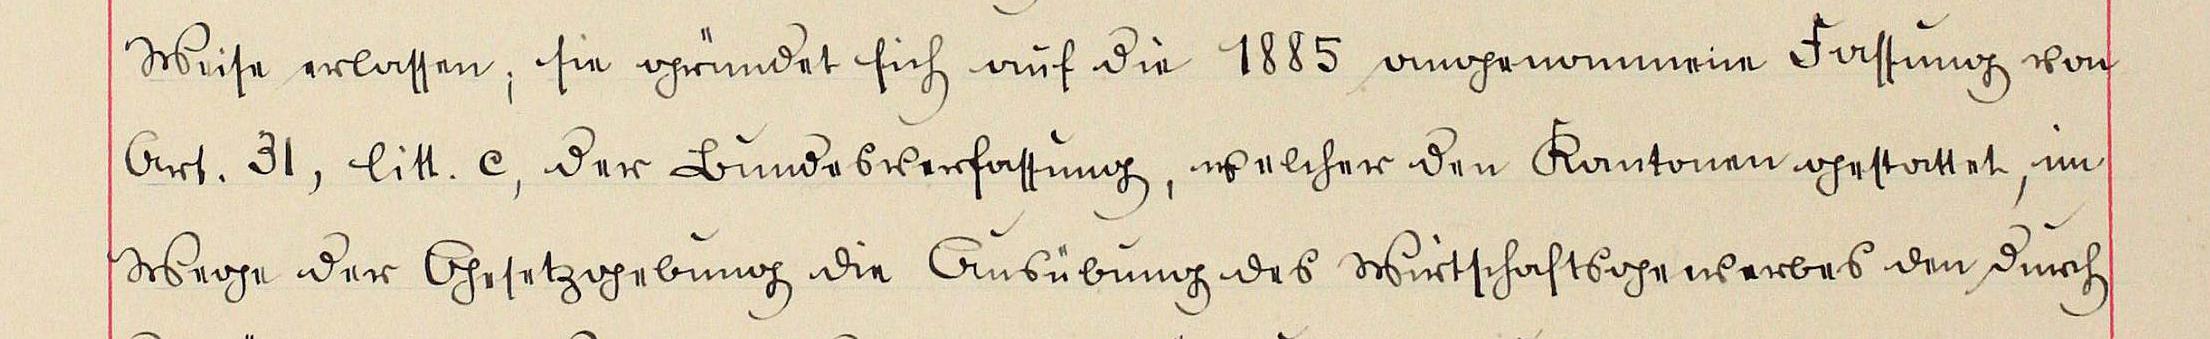 Weise erlassen; sie gründet sich auf die 1885 angenommene Fassung von
Art. 31, litt. c, der Bundesverfassung, welcher den Kantonen gestattet, im
Wege der Gesetzgebung die Ausübung des Wirtschaftsgewerbes den durch